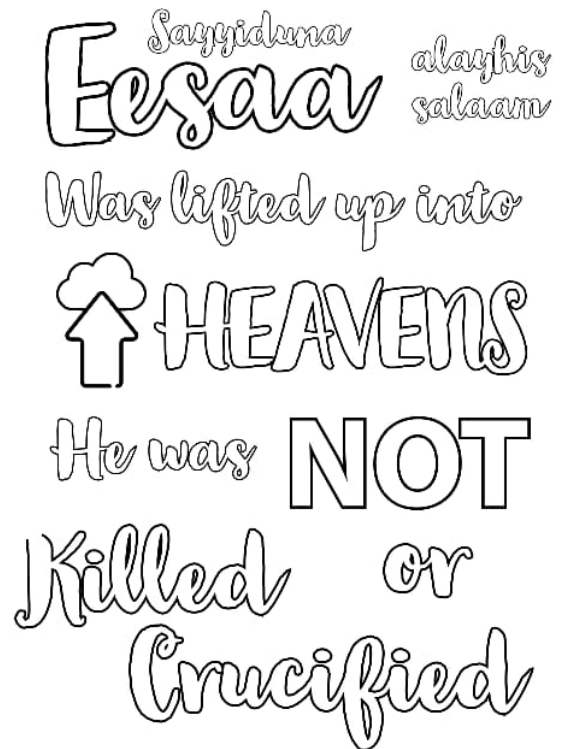 Sayyiduna
Eesaa alayhis salaam
Was lifted up into
HEAVENS
He was NOT
Killed or
Crucified